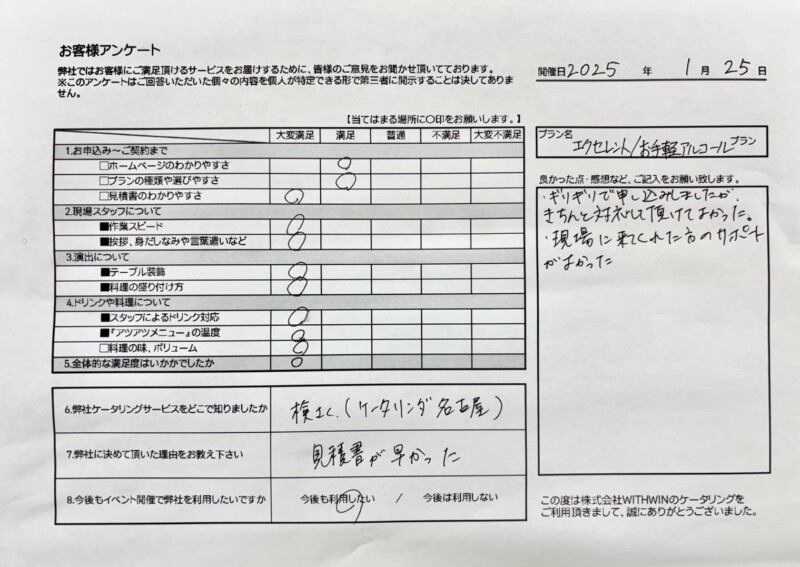 お客様アンケート
弊社ではお客様にご満足頂けるサービスをお届けするために、皆様のご意見をお聞かせ頂いております。
※このアンケートはご回答いただいた個々の内容を個人が特定できる形で第三者に開示することは決してありま
せん。
開催日2025 年 1月 25日
【当てはまる場所に○印をお願いします。】
大変満足 満足 普通 不満足 大変不満足
1.お申込み〜ご契約まで
□ホームページのわかりやすさ
□プランの種類や選びやすさ
□見積書のわかりやすさ
2.現場スタッフについて
■作業スピード
■挨拶、身だしなみや言葉遣いなど
3.演出について
■テーブル装飾
■料理の盛り付け方
4.ドリンクや料理について
■スタッフによるドリンク対応
■『アツアツメニュー』の温度
□料理の味、ボリューム
5.全体的な満足度はいかかでしたか
6.弊社ケータリングサービスをどこで知りましたか
検エく.(ケータリング名古屋)
7.弊社に決めて頂いた理由をお教え下さい
見積書が早かった
8.今後もイベント開催で弊社を利用したいですか
今後も利用したい / 今後は利用しない
プラン名
エクセレント/お手軽アルコールプラン
良かった点・感想など、ご記入をお願い致します。
・ギリギリで申し込みしましたが、
きちんと対応して頂けてよかった。
・現場に来てくれた方のサポート
がよかった
この度は株式会社WITHWINのケータリングを
ご利用頂きまして、誠にありがとうございました。